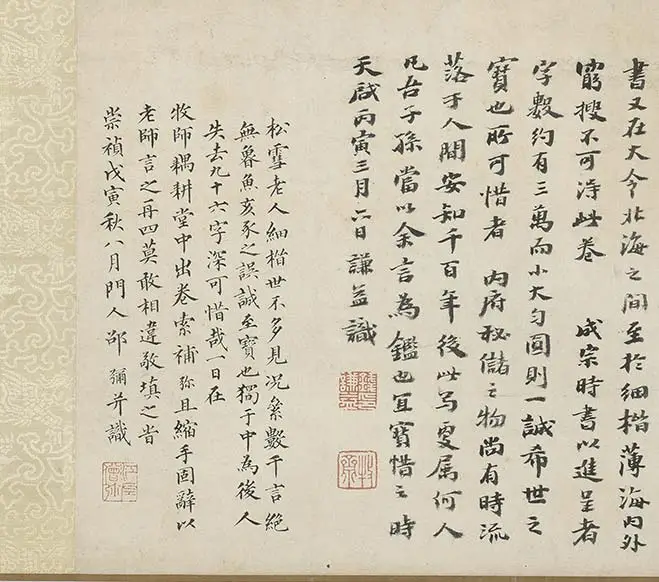 書又在大令北海之間至於細楷薄海內外
窮搜不可得此卷 成宗時書以進呈者
字數約有三萬而小大勻圓則一誠希世之
寶也所可惜者 內府秘儲之物尚有時流
落于人間安知千百年後此寫更屬何人
凡吾子孫當以余言為鑑也宜寶惜之時
天啟丙寅三月六日謙益識
松雪老人細楷世不多見況象數千言絕
無魯魚亥豕之誤誠至寶也獨于中為後人
失去九十六字深可惜哉一日在
牧師耦耕堂中出卷索補弥且縮手固辭以
老師言之再四莫敢相違敬填之旹
崇禎戊寅秋八月門人邵彌并識